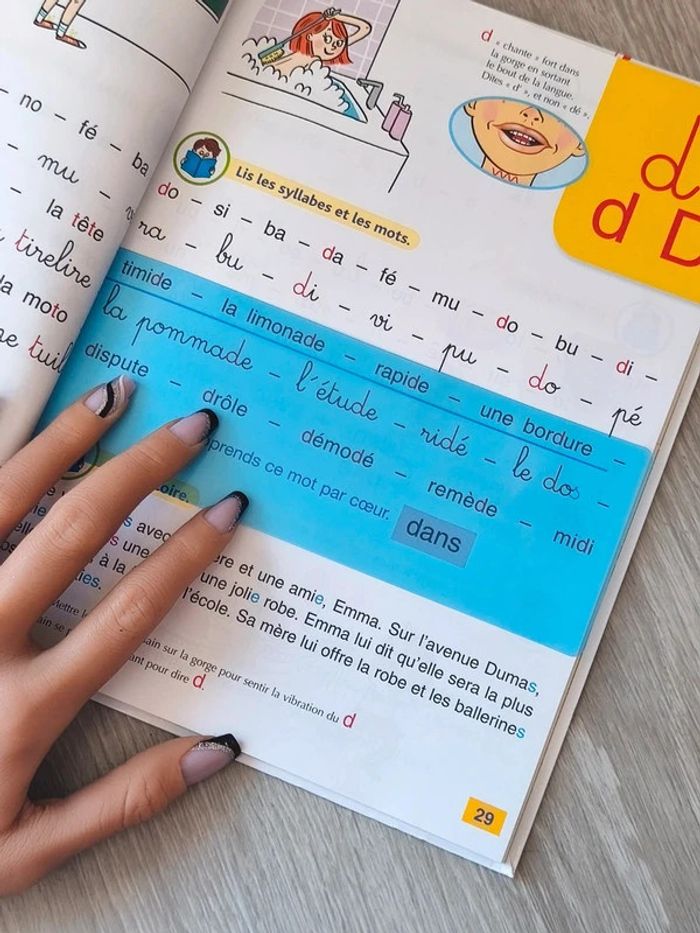 no – fé – ba
mu –
la tête
tirelire
la moto
tuil
d « chante » fort dans
la gorge en sortant
le bout de la langue.
Dites « d' », et non « dé ».
d
d D
Lis les syllabes et les mots.
do – si – ba – da – fé – mu – do – bu – di –
ra – bu – di – vi – pu – do – pé
timide – la limonade – rapide – une bordure –
la pommade – l'étude – ridé – le dos –
dispute – drôle – démodé – remède – midi
prends ce mot par cœur. dans
avec ère et une amie, Emma. Sur l'avenue Dumas,
une une jolie robe. Emma lui dit qu'elle sera la plus
à la l'école. Sa mère lui offre la robe et les ballerines
Mettre ain sur la gorge pour sentir la vibration du d
ant pour dire d.
29